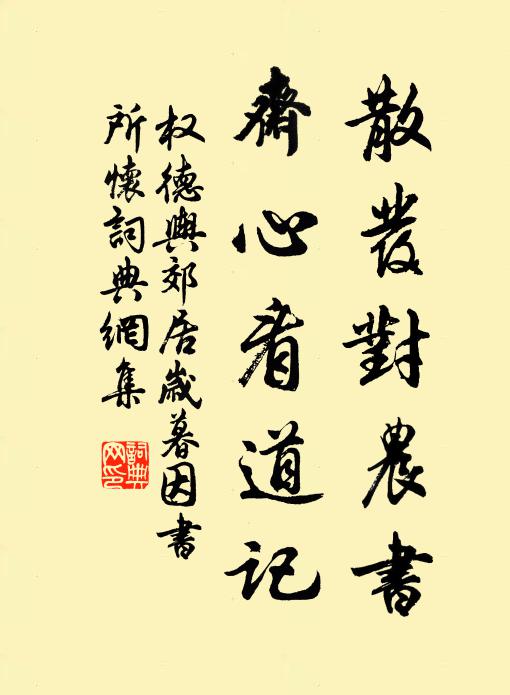 散發對農書
齋心看道記
权德輿郊居歲暮因書
所懷詞典網集
詞典網印